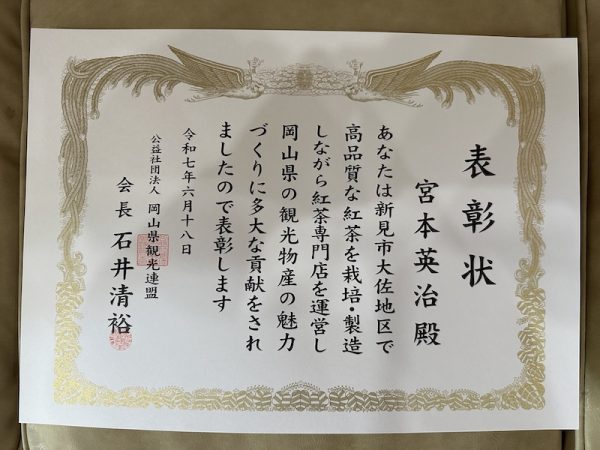 表彰状
宮本英治殿
あなたは新見市大佐地区で
高品質な紅茶を栽培・製造
しながら紅茶専門店を運営し
岡山県の観光物産の魅力
づくりに多大な貢献をされ
ましたので表彰します
令和七年六月十八日
公益社団法人 岡山県観光連盟
会長 石井清裕